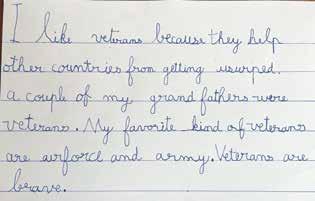 I like veterans because they help
other countries from getting usurped.
a couple of my grand fathers were
veterans. My favorite kind of veterans
are airforce and army. Veterans are
brave.